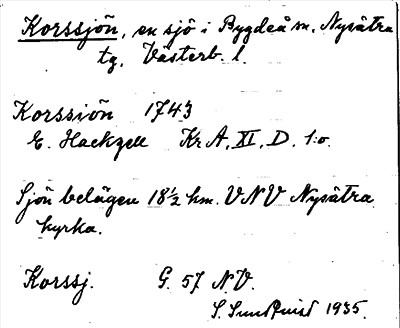 Korssjön, en sjö i Bygdeå m. Nysätra
tg. Västerb. l.
Korssiön 1743
E. Hackzell Kr A, XI, D. 1:o.
Sjön belägen 18½ km. VNV Nysätra
kyrka.
Korssj. G. 57 NV.
S. Sundquist 1935.